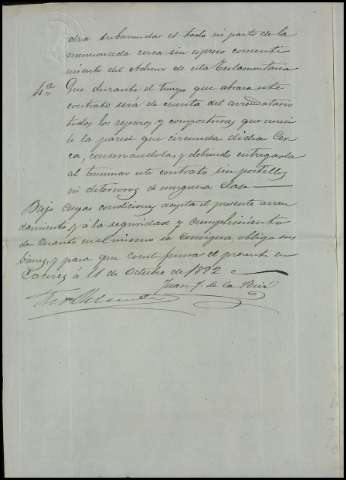 drá subarrendar el todo ni parte de la
mencionada cerca sin expreso consenti
miento del Admor de esta Testamentaria
4ª Que durante el tiempo que abraza este
contrato será de cuenta del arrendatario
todos los reparos y composturas que necesi
te la pared que circunda dicha Cer
ca, conservandola y debiendo entregarla
al terminar este contrato sin portillos
ni deterioros de ninguna clase
Bajo cuyas condiciones acepta el presente arren
damiento y á la seguridad y cumplimiento
de cuanto en el mismo se consigna, obliga sus
bienes, y para que conste firma el presente en
Caceres á 11 de Octubre de 1892
Juan J. de la Riva